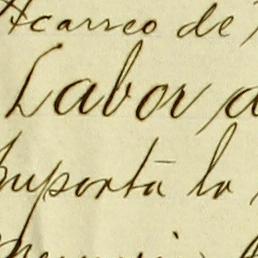 Acarreo de
Labor d
Importa la